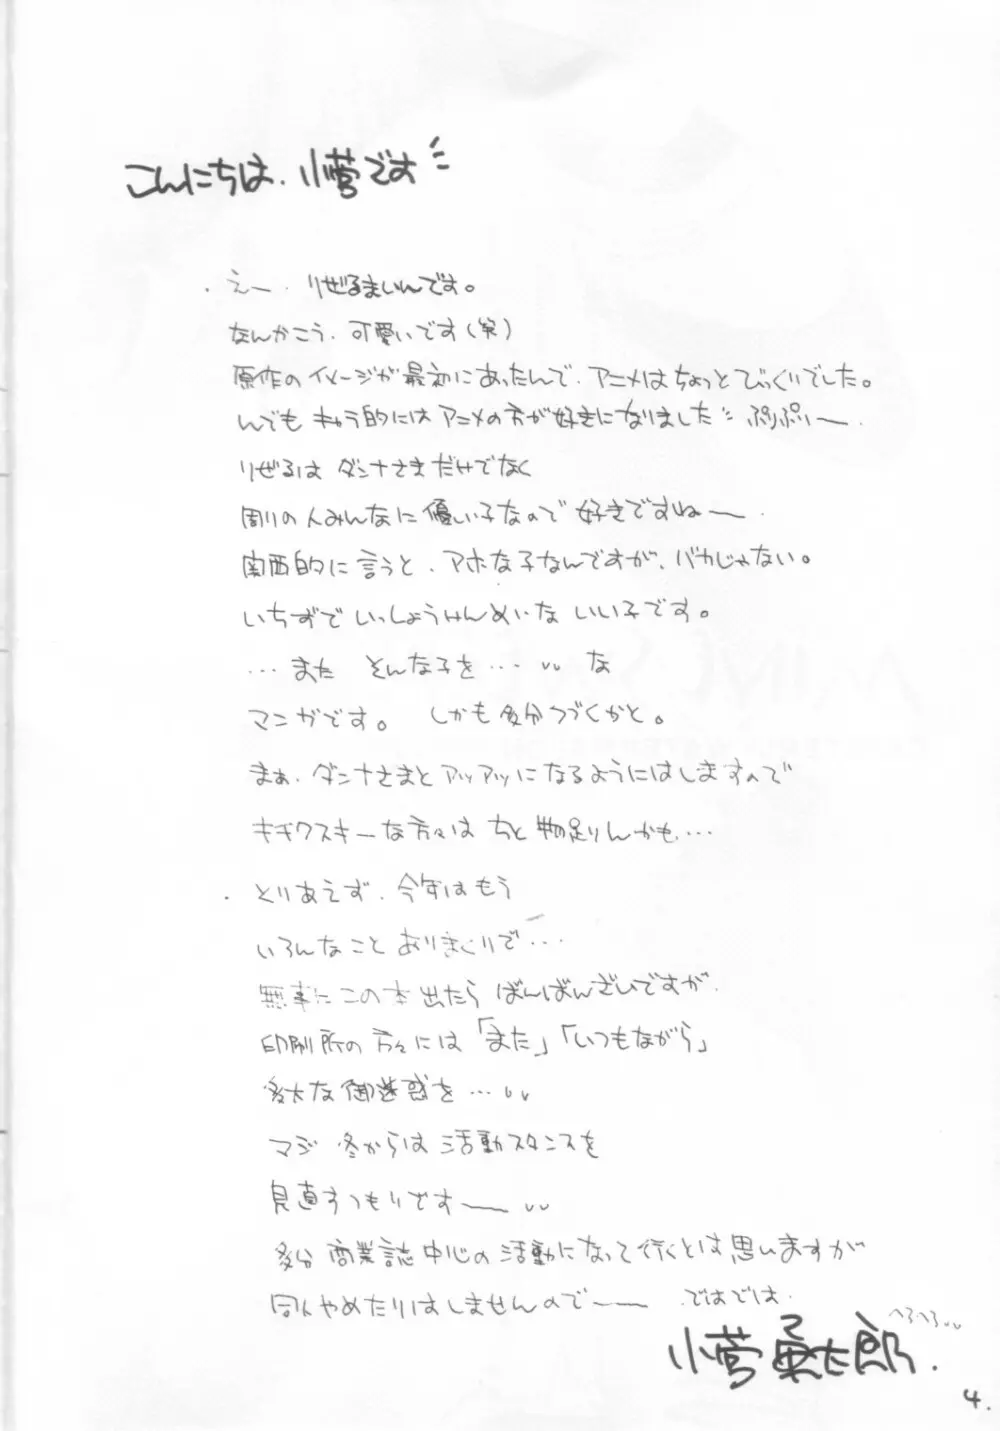 こんにちは、小菅です
・えー、りぜるまいんです。
なんかこう、可愛いです(笑)
原作のイメージが最初にあったんで、アニメはちょっとびっくりでした。
んでも キャラ的にはアニメの方が好きになりました ぷりぷりー。
りぜるは ダンナさまだけでなく
周りの人みんなに優しい子なので好きですねー。
関西的に言うと、アホな子なんですが、バカじゃない。
いちずでいっしょうけんめいな いい子です。
…また そんな子を… な
マンガです。 しかも多分つづくかと。
まぁ、ダンナさまとアツアツになるようにはしますので
キチクスキーな方々は ちと物足りんかも…
・とりあえず、今年はもう
いろんなことありまくりで…
無事にこの本出たら ばんばんざいですが、
印刷所の方々には「また」「いつもながら」
多大な御迷惑を…
マジ 冬からは活動スタンスを
見直すつもりですー
多分 商業誌中心の活動になって行くとは思いますが
同人やめたりはしませんのでー ではでは、
へろへろ
小菅勇太郎.
4.